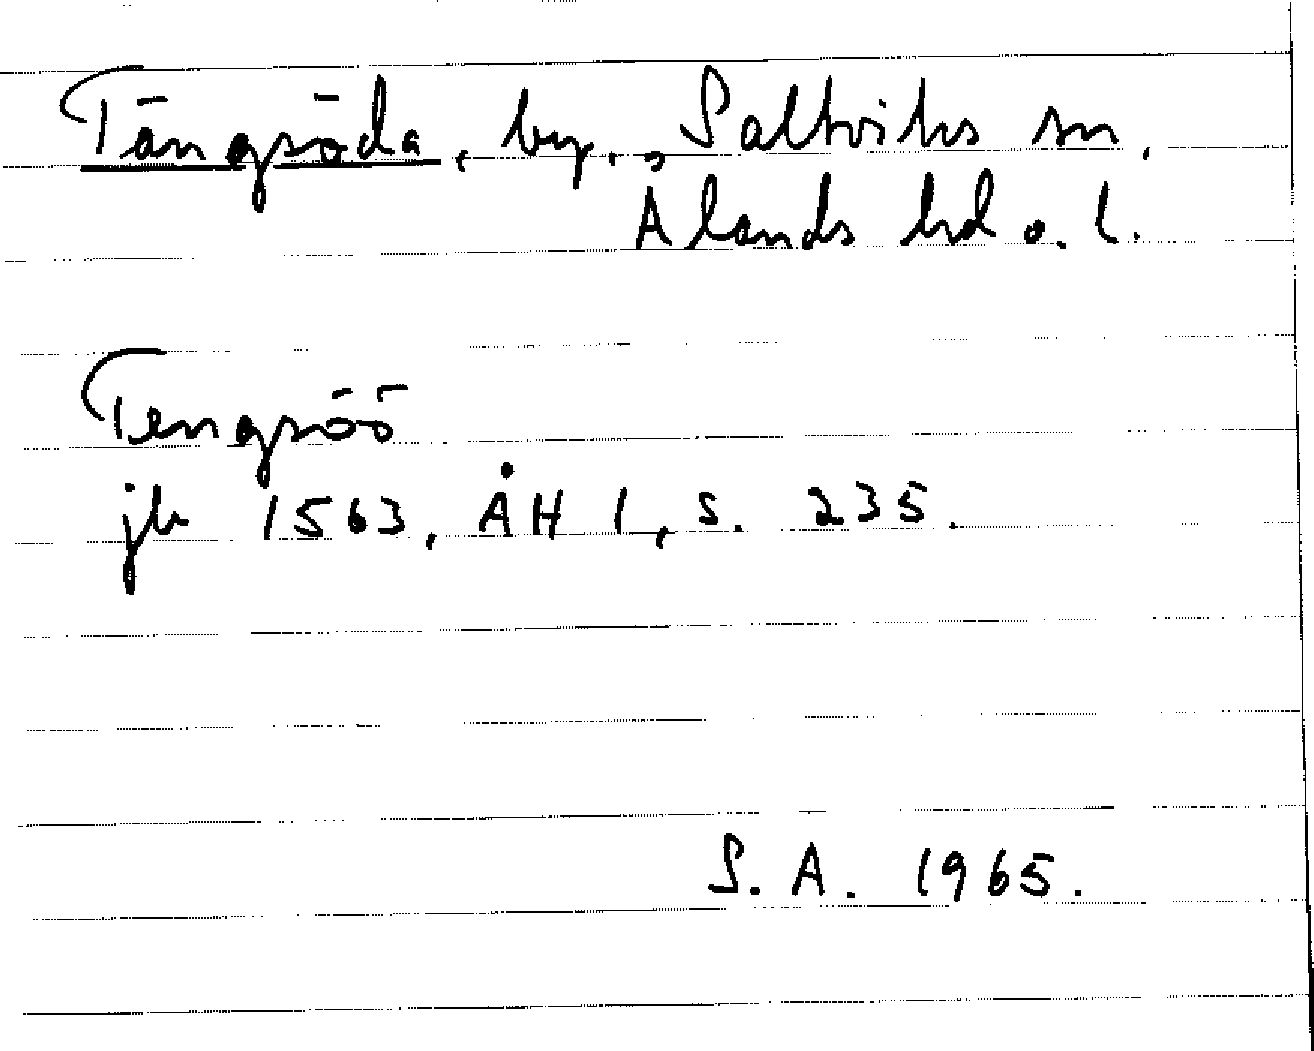 Tängsöda, by., Saltviks sn,
Ålands hd o. l.
Tengsöö
jb 1563, ÅH I, s. 235.
S. A. 1965.